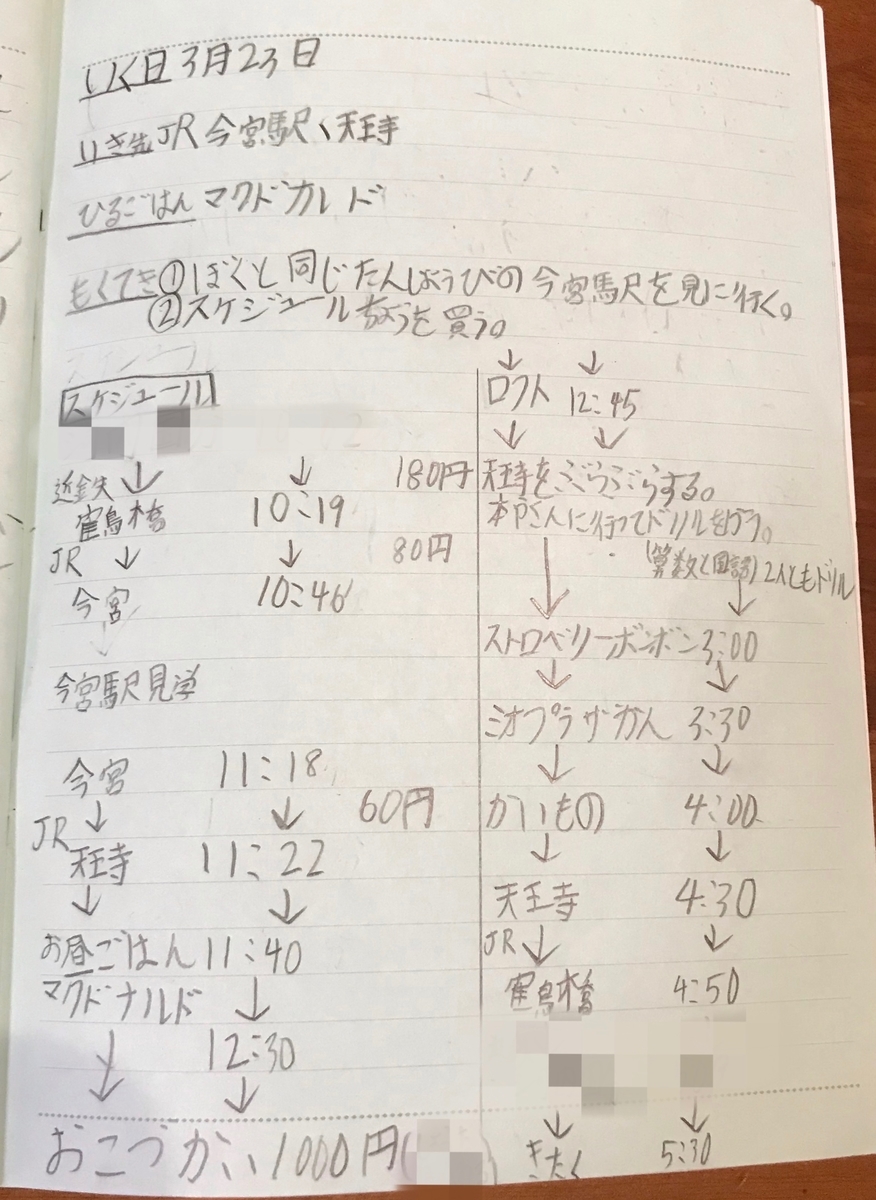 いく日 3月23日
いき先 JR 今宮駅、天王寺
ひるごはん マクドナルド
もくてき ①ぼくと同じたんじょうびの今宮駅を見に行く。
②スケジュールちょうを買う。
スケジュール
↓ ↓ 180円
近鉄
鶴橋 10:19
JR ↓ ↓ 80円
今宮 10:46
↓
今宮駅見学
今宮 11:18
JR ↓ ↓ 60円
天王寺 11:22
↓ ↓
お昼ごはん 11:40
マクドナルド ↓
↓ 12:30
↓
おこづかい 1000円(
↓ ↓
ロフト 12:45
↓ ↓
天王寺をぶらぶらする。
本やさんに行ってドリルを買う。
(算数と国語) 2人ともドリル
↓ ↓
ストロベリーボンボン 3:00
↓ ↓
ミオプラザかん 3:30
↓ ↓
かいもの 4:00
↓ ↓
天王寺 4:30
JR ↓ ↓
鶴橋 4:50
↓ ↓
きたく 5:30